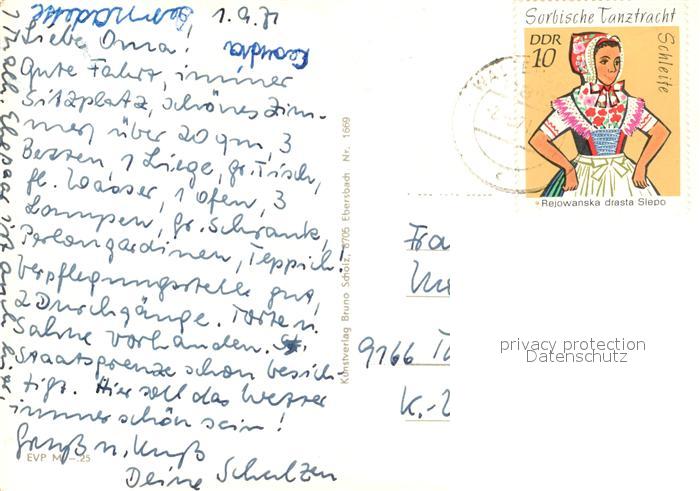 1.9.71
Liebe Oma!
Gute Fahrt, immer
Sitzplatz, schönes Zim-
mer, über 20 qm, 3
Betten, 1 Liege, gr. Tisch,
fl. Wasser, 1 Ofen, 3
Lampen, gr. Schrank,
Perlongardinen, Teppich!
Verpflegungsstelle gut,
2 Durchgänge. Torte u.
Sahne vorhanden.
Staatsgrenze schon besich-
tigt. Hier soll das Wetter
immer schön sein!
Gruß u. Kuß
Deine Schulzen
EVP M -.25
Kunstverlag Bruno Scholz, 8705 Ebersbach Nr. 1669
Sorbische Tanztracht
DDR
10
Schleife
Rejowanska drasta Slepo
Fra
9166
K.-
privacy protection
Datenschutz